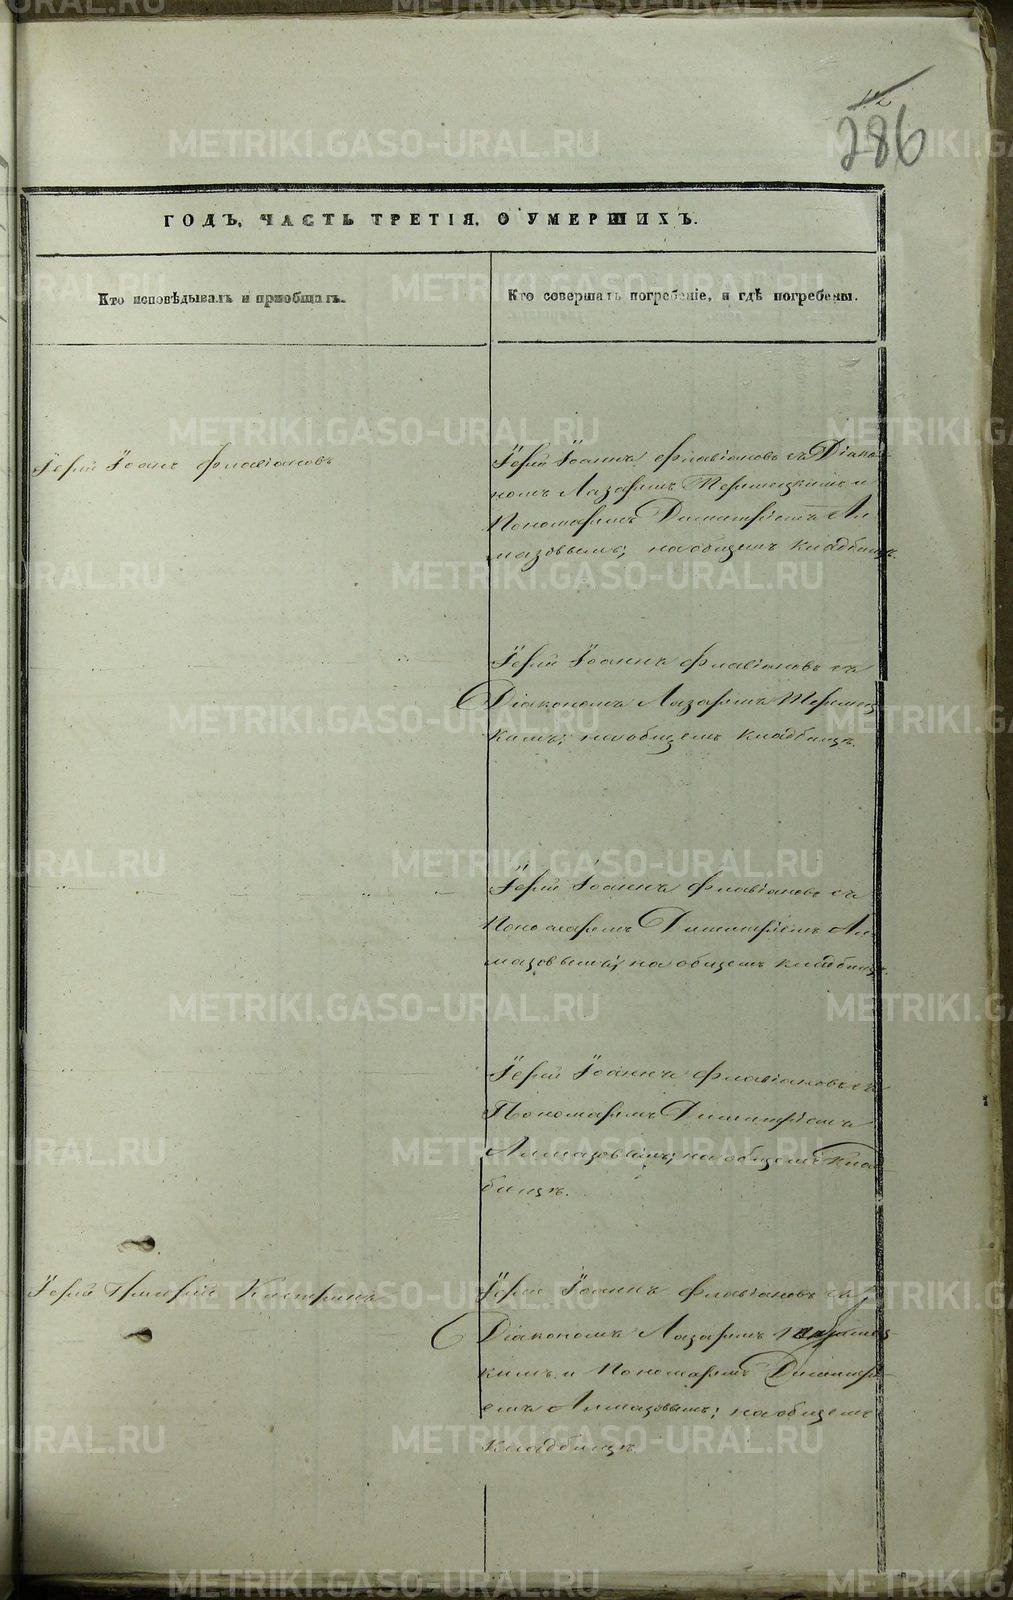 286
ГОДЪ, ЧАСТЬ ТРЕТІЯ, О УМЕРШИХЪ.
Кто исповѣдывалъ и пріобщалъ.
Кто совершалъ погребеніе, и гдѣ погребены.
Іерей Іоаннъ Флавіановъ
Іерей Іоаннъ Флавіановъ съ Діако-
номъ Лазаремъ и
Пономаремъ Димитріемъ Ал-
мазовымъ; на общемъ кладбищѣ.
Іерей Іоаннъ Флавіановъ съ
Діакономъ Лазаремъ
кимъ; на общемъ кладбищѣ.
Іерей Іоаннъ Флавіановъ съ
Пономаремъ Димитріемъ Ал-
мазовымъ; на общемъ кладбищѣ.
Іерей Іоаннъ Флавіановъ съ
Пономаремъ Димитріемъ
Алмазовымъ; на общемъ клад-
бищѣ.
Іерей
Іерей Іоаннъ Флавіановъ съ
Діакономъ Лазаремъ
кимъ и Пономаремъ Димитрі-
емъ Алмазовымъ; на общемъ
кладбищѣ.
METRIKI.GASO-URAL.RU